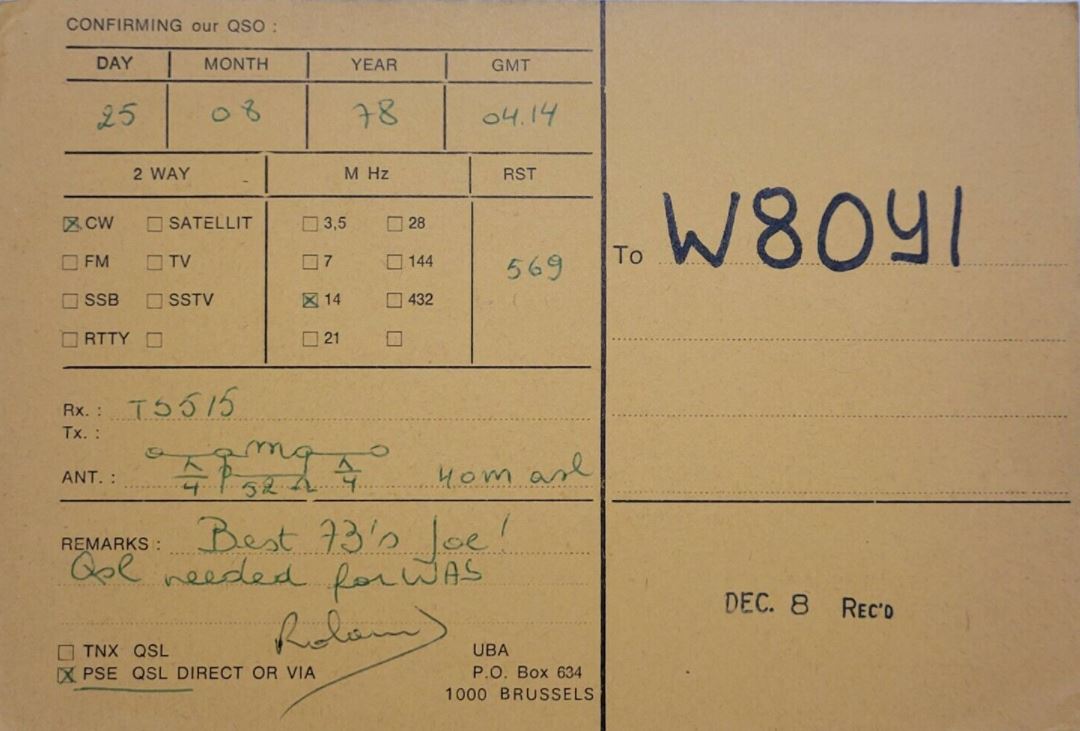 CONFIRMING our QSO :
DAY MONTH YEAR GMT
25 08 78 04.14
2 WAY M Hz RST
CW SATELLIT 3,5 28
FM TV 7 144
569
SSB SSTV 14 432
RTTY 21
Rx. : TS515
Tx. :
ANT. : λ/4 52 Ω λ/4 40m asl
REMARKS : Best 73's Joe!
Qsl needed for WAS
Roland
TNX QSL
PSE QSL DIRECT OR VIA
UBA
P.O. Box 634
1000 BRUSSELS
To W8OYI
DEC. 8 REC'D